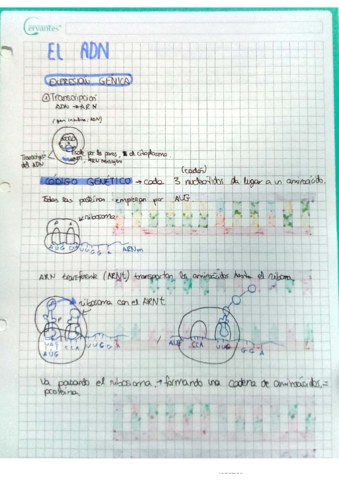 Cervantes
EL ADN
EXPRESIÓN GÉNICA
Transcripción
ADN → ARN
sale por los poros, al citoplasma.
ARN mensajero
Transcripción
del ADN
(codón)
CÓDIGO GENÉTICO → cada 3 nucleótidos da lugar a un aminoácido.
Todas las proteínas empiezan por AUG.
ribosoma
AUG
ARNm
ARN transferente (ARNt) transportan los aminoácidos hasta el ribosoma
ribosoma con el ARNt
AUG CCA UUG
AUG CCA UUG GGA
Va pasando el ribosoma, → formando una cadena de aminoácidos =
proteína.